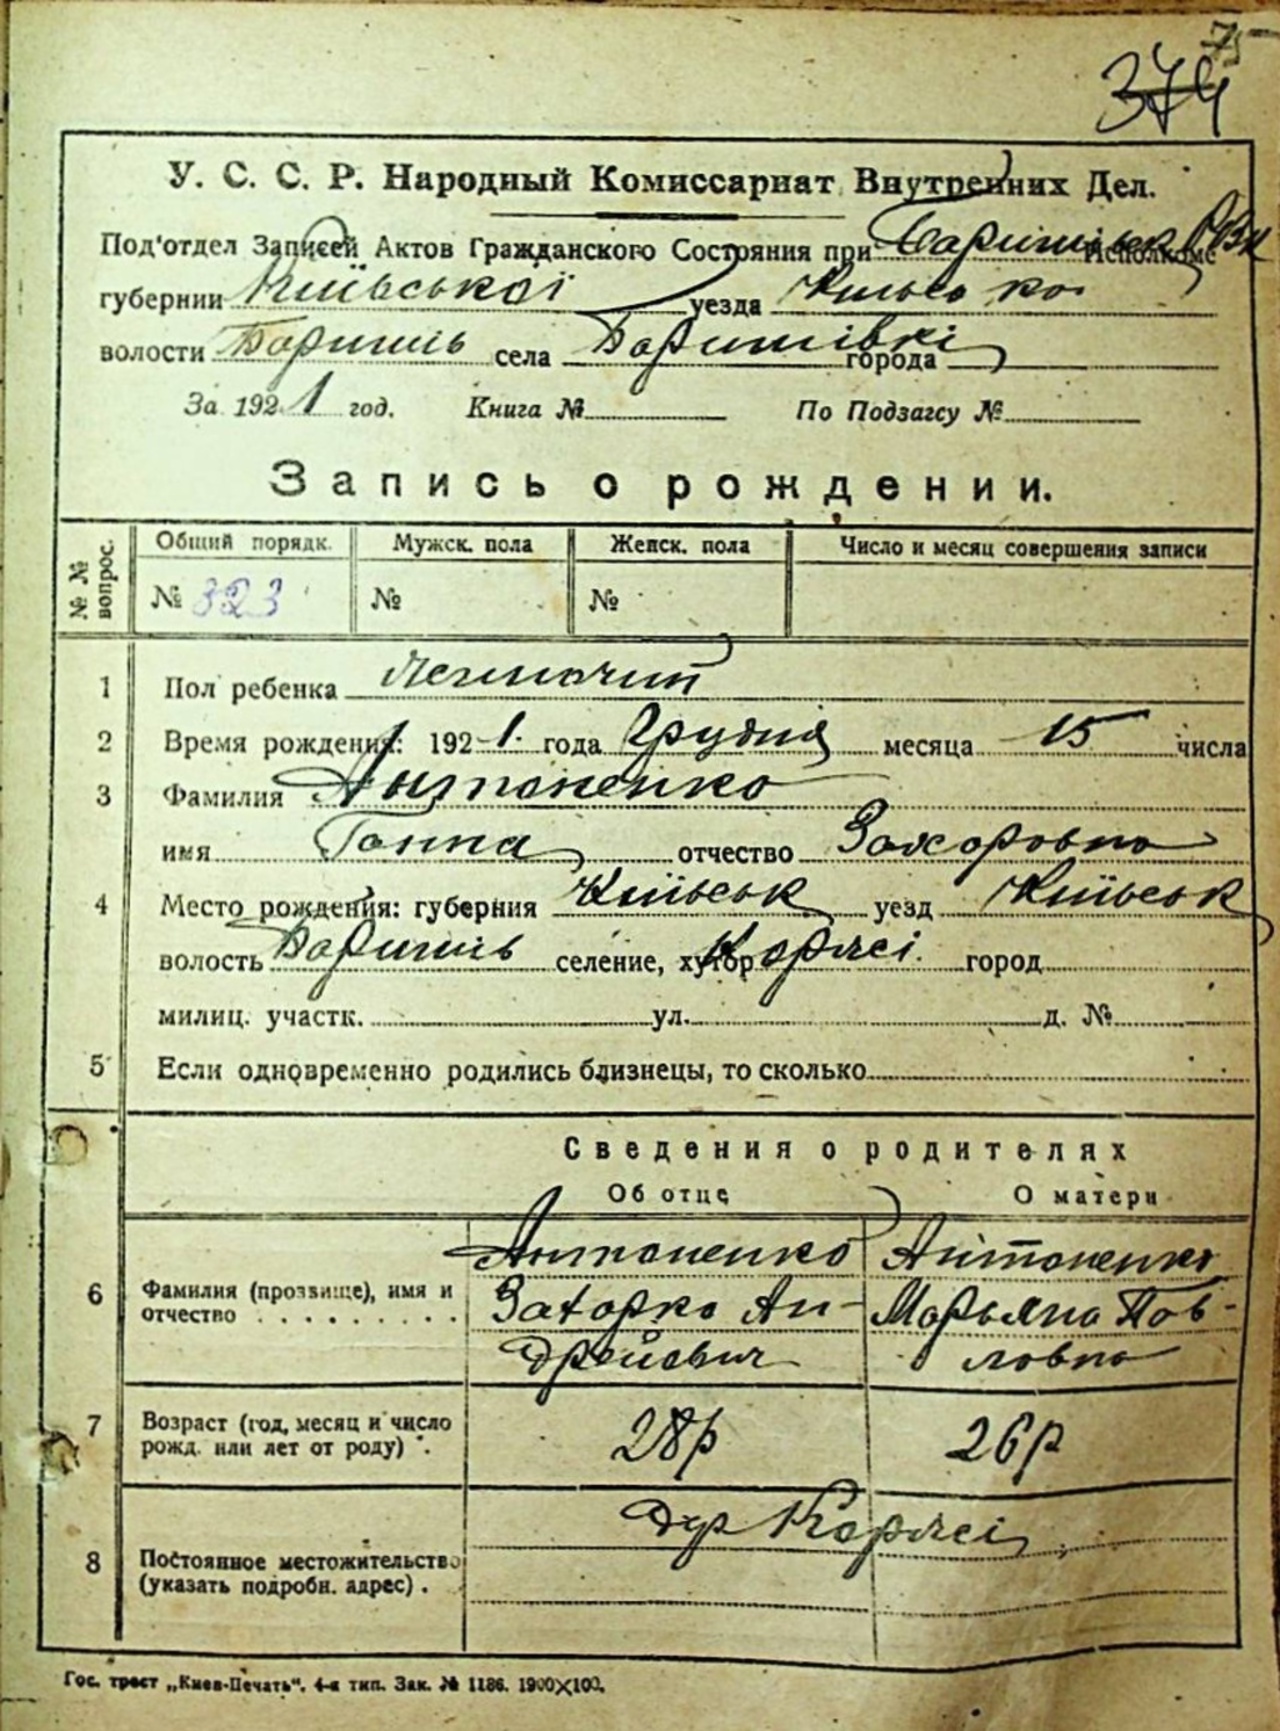 374
У. С. С. Р. Народный Комиссариат Внутренних Дел.
Под'отдел Записей Актов Гражданского Состояния при Баришівськ РВК Исполкоме
губернии Київської уезда Київсько
волости Баришів села Баришівкі города
За 1921 год. Книга № По Подзагсу №
Запись о рождении.
№№ вопрос. Общий порядк. Мужск. пола Женск. пола Число и месяц совершения записи
№ 323 № №
1 Пол ребенка
2 Время рождения: 1921. года Грудня месяца 15 числа
3 Фамилия Антоненко
имя Ганна отчество Захоровна
4 Место рождения: губерния Київськ уезд Київськ
волость Баришів селение, хутор Коржі город
милиц. участк. ул. д. №
5 Если одновременно родились близнецы, то сколько
Сведения о родителях
Об отце О матери
Антоненко Антоненко
6 Фамилия (прозвище), имя и Захорко Ан- Марьяна Пав-
отчество дрейевич ловна
7 Возраст (год, месяц и число рожд. или лет от роду). 28р 26р
Коржі
8 Постоянное местожительство
(указать подробн. адрес).
Гос. трест „Киев-Печать“. 4-я тип. Зак. № 1186. 1900×100.